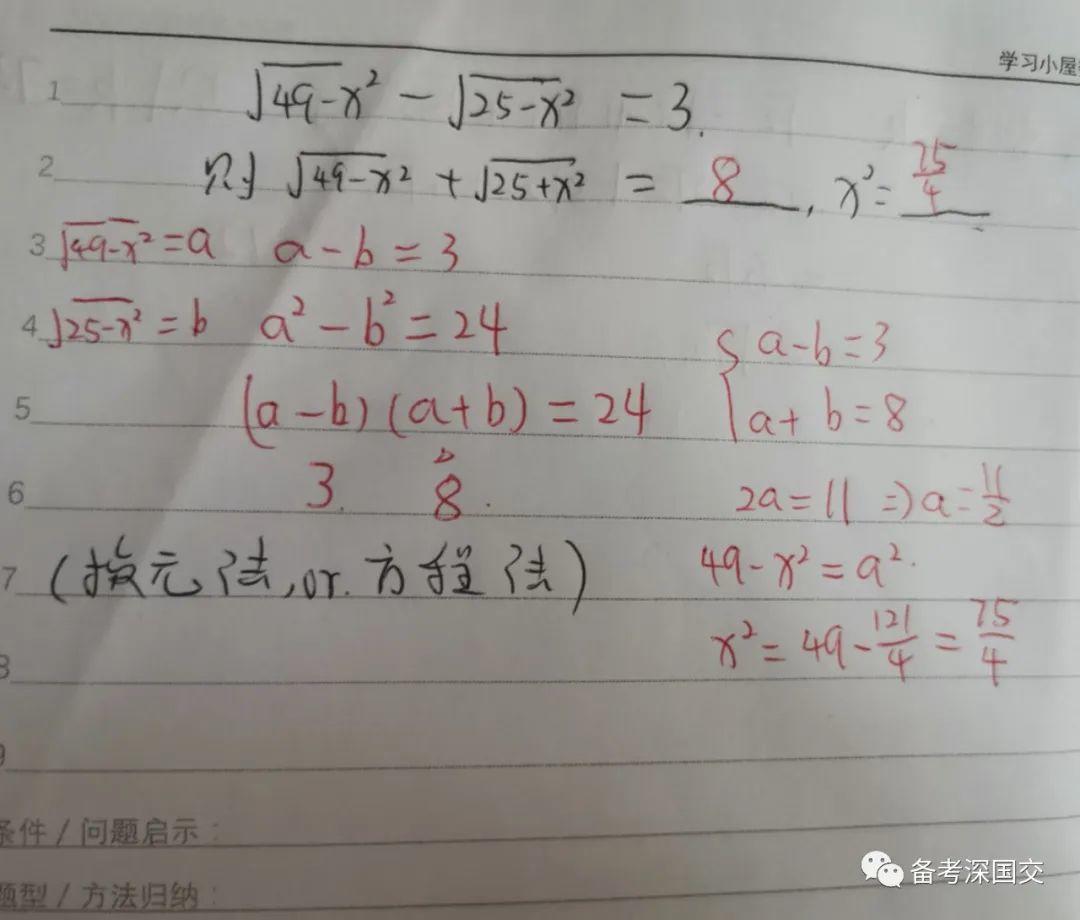 学习小屋
1 √49-x² - √25-x² = 3.
2 则 √49-x² + √25+x² = 8, x² = 75/4
3 √49-x² = a a-b=3
4 √25-x² = b a²-b²=24
{ a-b=3
5 (a-b)(a+b)=24 a+b=8
6 3. 8. 2a=11 ⇒ a=11/2
7 (换元法, or. 方程法) 49-x²=a².
x²=49-121/4=75/4
条件 / 问题启示:
题型 / 方法归纳:
备考深国交